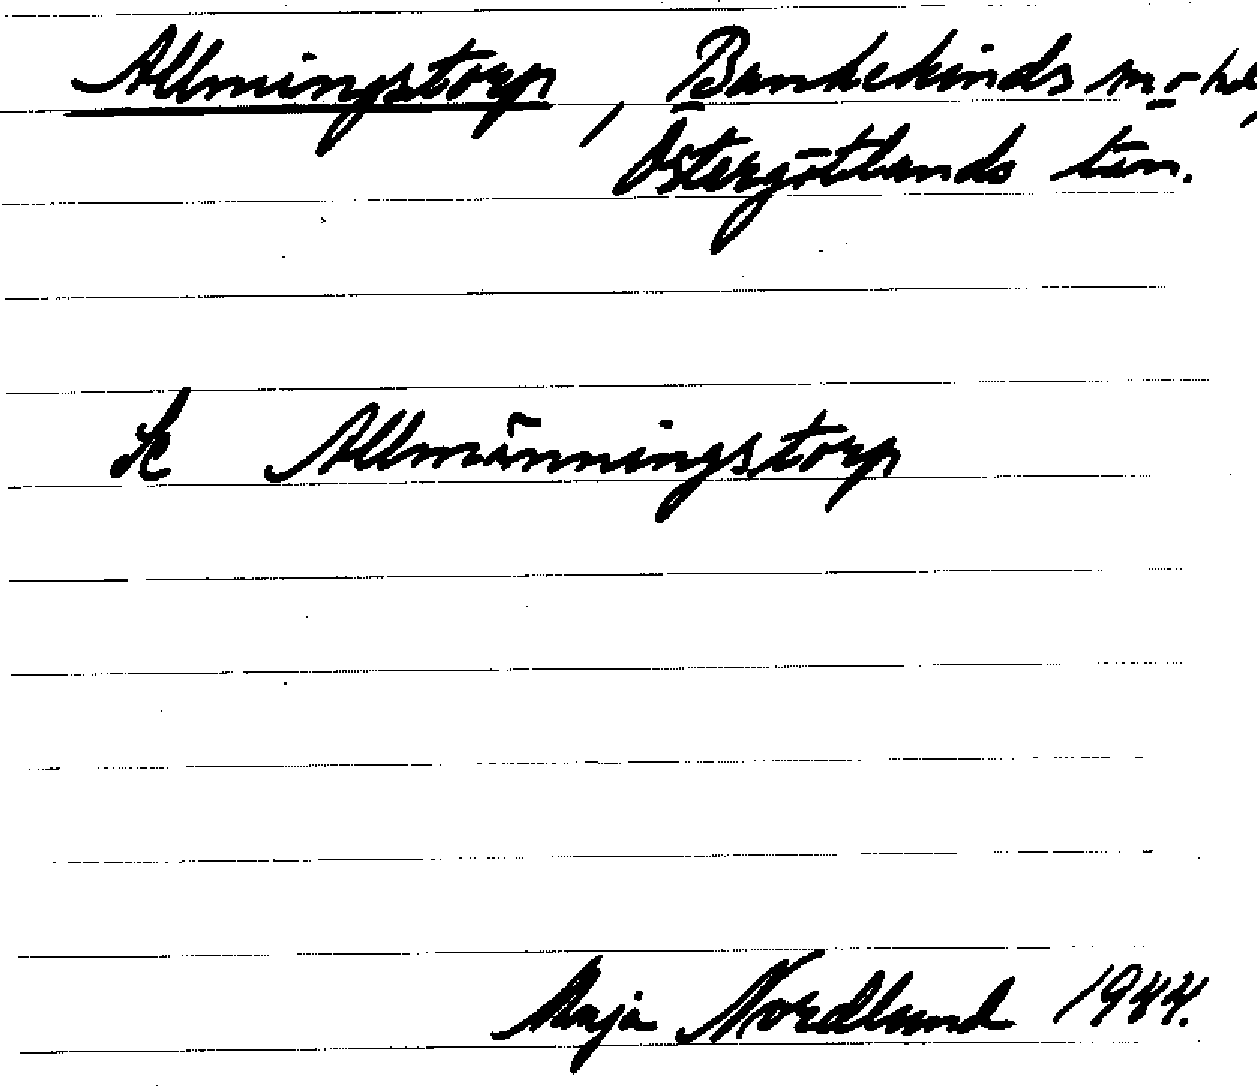 Allmingstorp, Bankekinds sn o hd,
Östergötlands län.
Se Allmänningstorp
Maja Nordlund 1944.